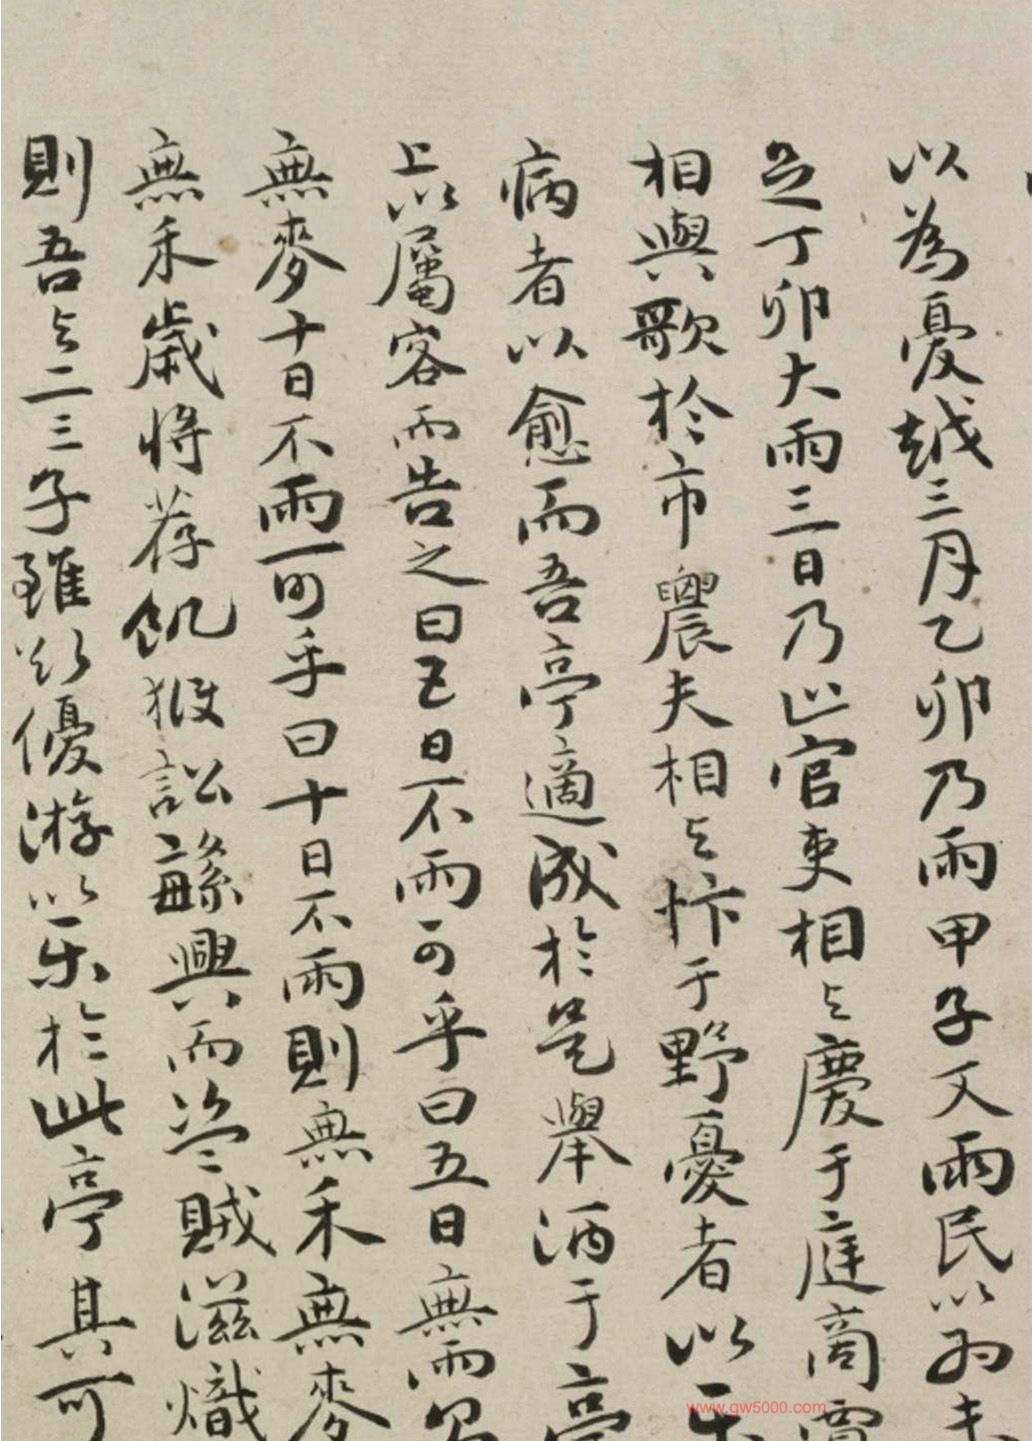 以為憂越三月乙卯乃雨甲子又雨民以为未
足丁卯大雨三日乃止官吏相与慶于庭商賈
相與歌於市農夫相与忭于野憂者以乐
病者以愈而吾亭適成於是舉酒于亭
上以屬客而告之曰五日不雨可乎曰五日無雨
無麥十日不雨可乎曰十日不雨則無禾無麥
無禾歲將荐飢獄訟繇興而盜賊滋熾
則吾与二三子雖欲優游以乐於此亭其可
www.gw5000.com